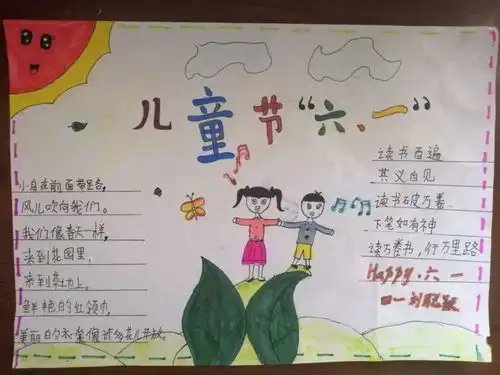 儿童节“六、一”
小鸟在前面带路,
风儿吹向我们。
我们像春天一样,
来到花园里,
来到草地上。
鲜艳的红领巾,
美丽的衣裳像许多花儿开放。
读书百遍
其义自见
读书破万卷、
下笔如有神
读万卷书，行万里路
Happy 六 一